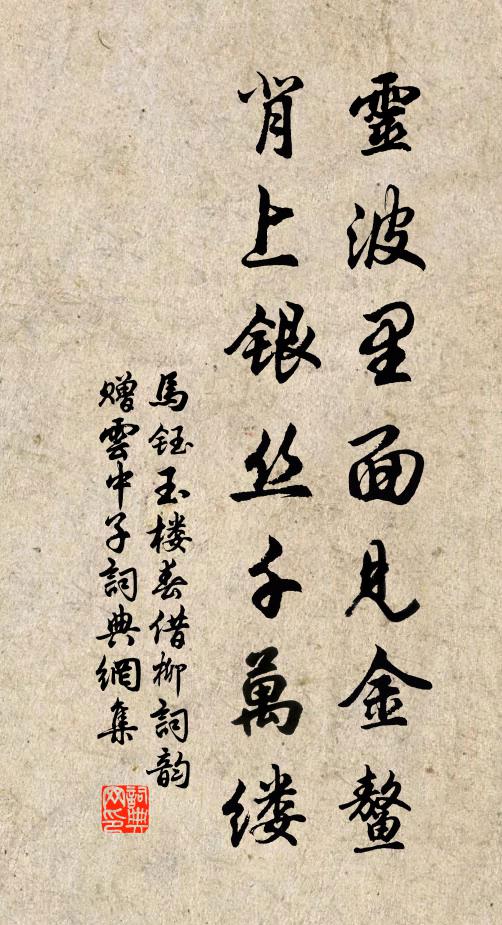 靈波里面見金鰲
背上銀丝千萬缕
馬鈺玉楼春借柳詞韵
赠雲中子詞典網集
詞典
网印